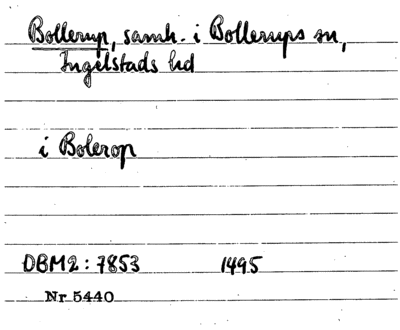 Bollerup, samh. i Bollerups sn,
Ingelstads hd
i Bolerop
DBM2: 7853 1495
Nr 5440